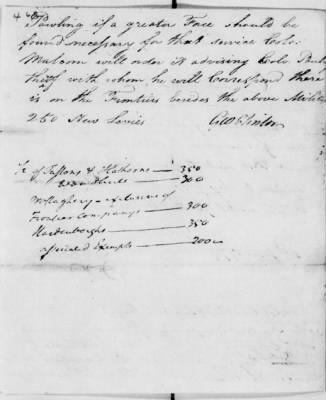 Pawling if a greater Force should be
found necessary for that service Colo.
Malcom will order it advising Colo.
with whom he will Correspond there
is on the Frontiers besides the above Militia
250 New Levies
Geo Clinton
350
300
exclusive of
Frontier Companys — 300
Hardenberghs — 350
Exempts — 200